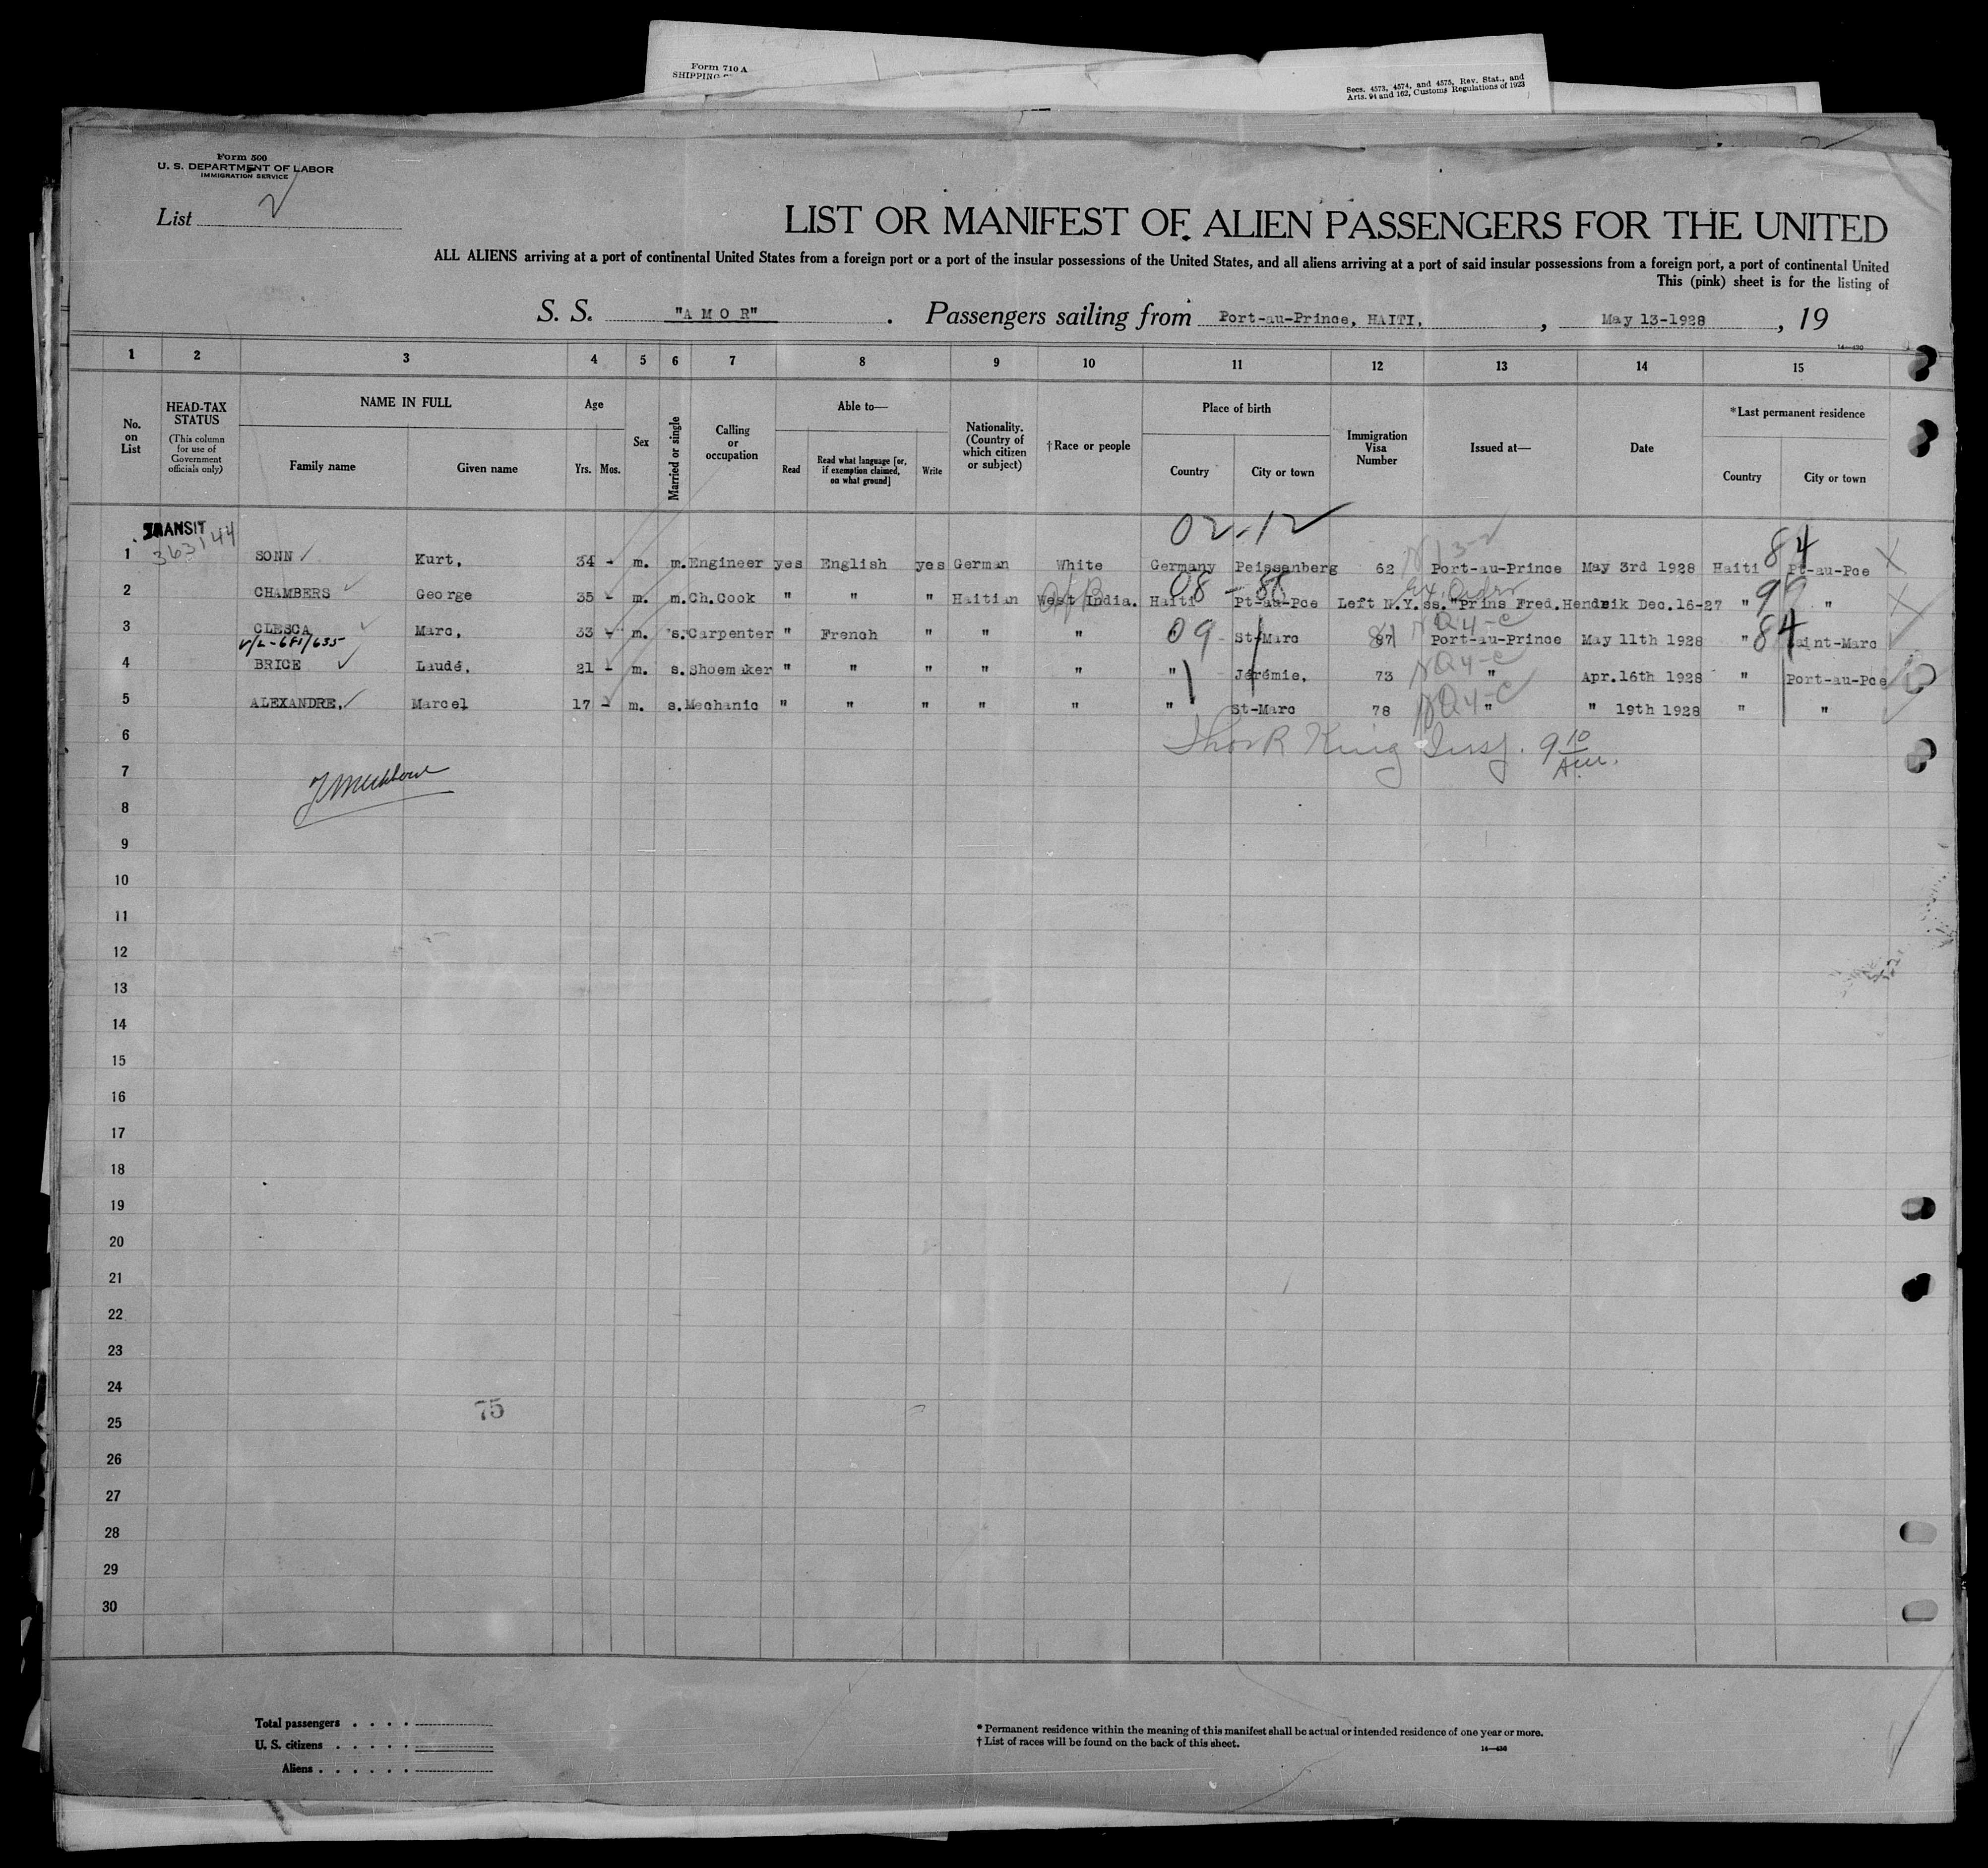 Form 710 A
SHIPPING
Secs. 4573, 4574, and 4575, Rev. Stat., and
Arts. 91 and 162, Customs Regulations of 1923
Form 500
U. S. DEPARTMENT OF LABOR
IMMIGRATION SERVICE
List 2
LIST OR MANIFEST OF ALIEN PASSENGERS FOR THE UNITED
ALL ALIENS arriving at a port of continental United States from a foreign port or a port of the insular possessions of the United States, and all aliens arriving at a port of said insular possessions from a foreign port, a port of continental United
This (pink) sheet is for the listing of
S. S. "A M O R" . Passengers sailing from Port-au-Prince, HAITI, , May 13-1928 , 19
14-430
1 2 3 4 5 6 7 8 9 10 11 12 13 14 15
No. on List
HEAD-TAX STATUS (This column for use of Government officials only)
NAME IN FULL
Family name Given name
Age
Yrs. Mos.
Sex
Married or single
Calling or occupation
Able to—
Read Read what language [or, if exemption claimed, on what ground] Write
Nationality. (Country of which citizen or subject)
†Race or people
Place of birth
Country City or town
Immigration Visa Number
Issued at—
Date
*Last permanent residence
Country City or town
TRANSIT
363144
02-12
84
1 SONN Kurt, 34 - m. m. Engineer yes English yes German White Germany Peissenberg 62 Port-au-Prince May 3rd 1928 Haiti Pt-au-Pce
08 - 88
2 CHAMBERS George 35 - m. m. Ch.Cook " " " Haitian West India. Haiti Pt-au-Pce Left N.Y. ss. "Prins Fred. Hendrik Dec.16-27 " "
NQ4-C
3 CLESCA Marc, 33 - m. s. Carpenter " French " " " 09 St-Marc 87 Port-au-Prince May 11th 1928 " 84 Saint-Marc
V/L-681/635
NQ4-C
4 BRICE Laudé, 21 - m. s. Shoemaker " " " " " " Jérémie, 73 " Apr.16th 1928 " Port-au-Pce
NQ4-C
5 ALEXANDRE, Marcel 17 - m. s. Mechanic " " " " " " St-Marc 78 " " 19th 1928 " "
6
King Insp. 9 10
7
8
9
10
11
12
13
14
15
16
17
18
19
20
21
22
23
24
75
25
26
27
28
29
30
Total passengers . . . .
U. S. citizens . . . . .
Aliens . . . . . .
* Permanent residence within the meaning of this manifest shall be actual or intended residence of one year or more.
† List of races will be found on the back of this sheet.
14-430